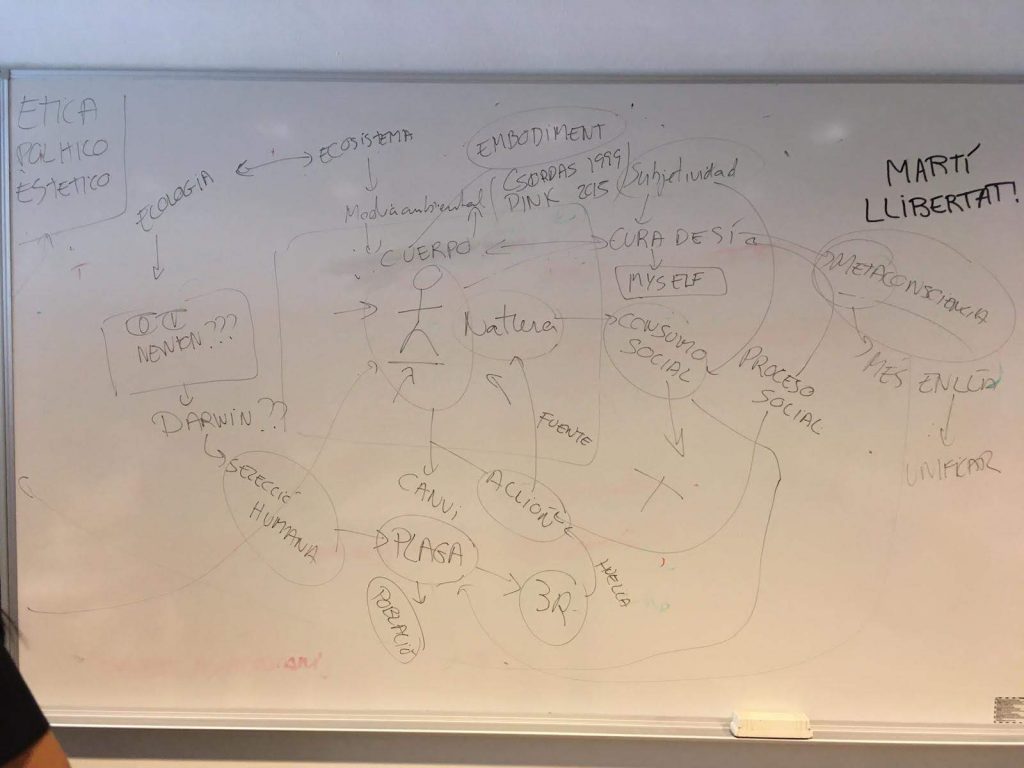 ETICA
POLITICO
ESTETICO
ECOLOGIA
ECOSISTEMA
EMBODIMENT
(CSORDAS 1999
PINK 2015)
Subjetividad
MARTÍ
LLIBERTAT!
CUERPO
CURA DE SÍ
MYSELF
METACONSCIENCIA
Natura
CONSUMO
SOCIAL
PROCESO
SOCIAL
MÉS ENLLÀ
UNIFICAR
DARWIN??
SELECCIÓ
HUMANA
FUENTE
CANVI
ACCIÓN
PLAGA
3R
HUELLA
POBLACIÓ